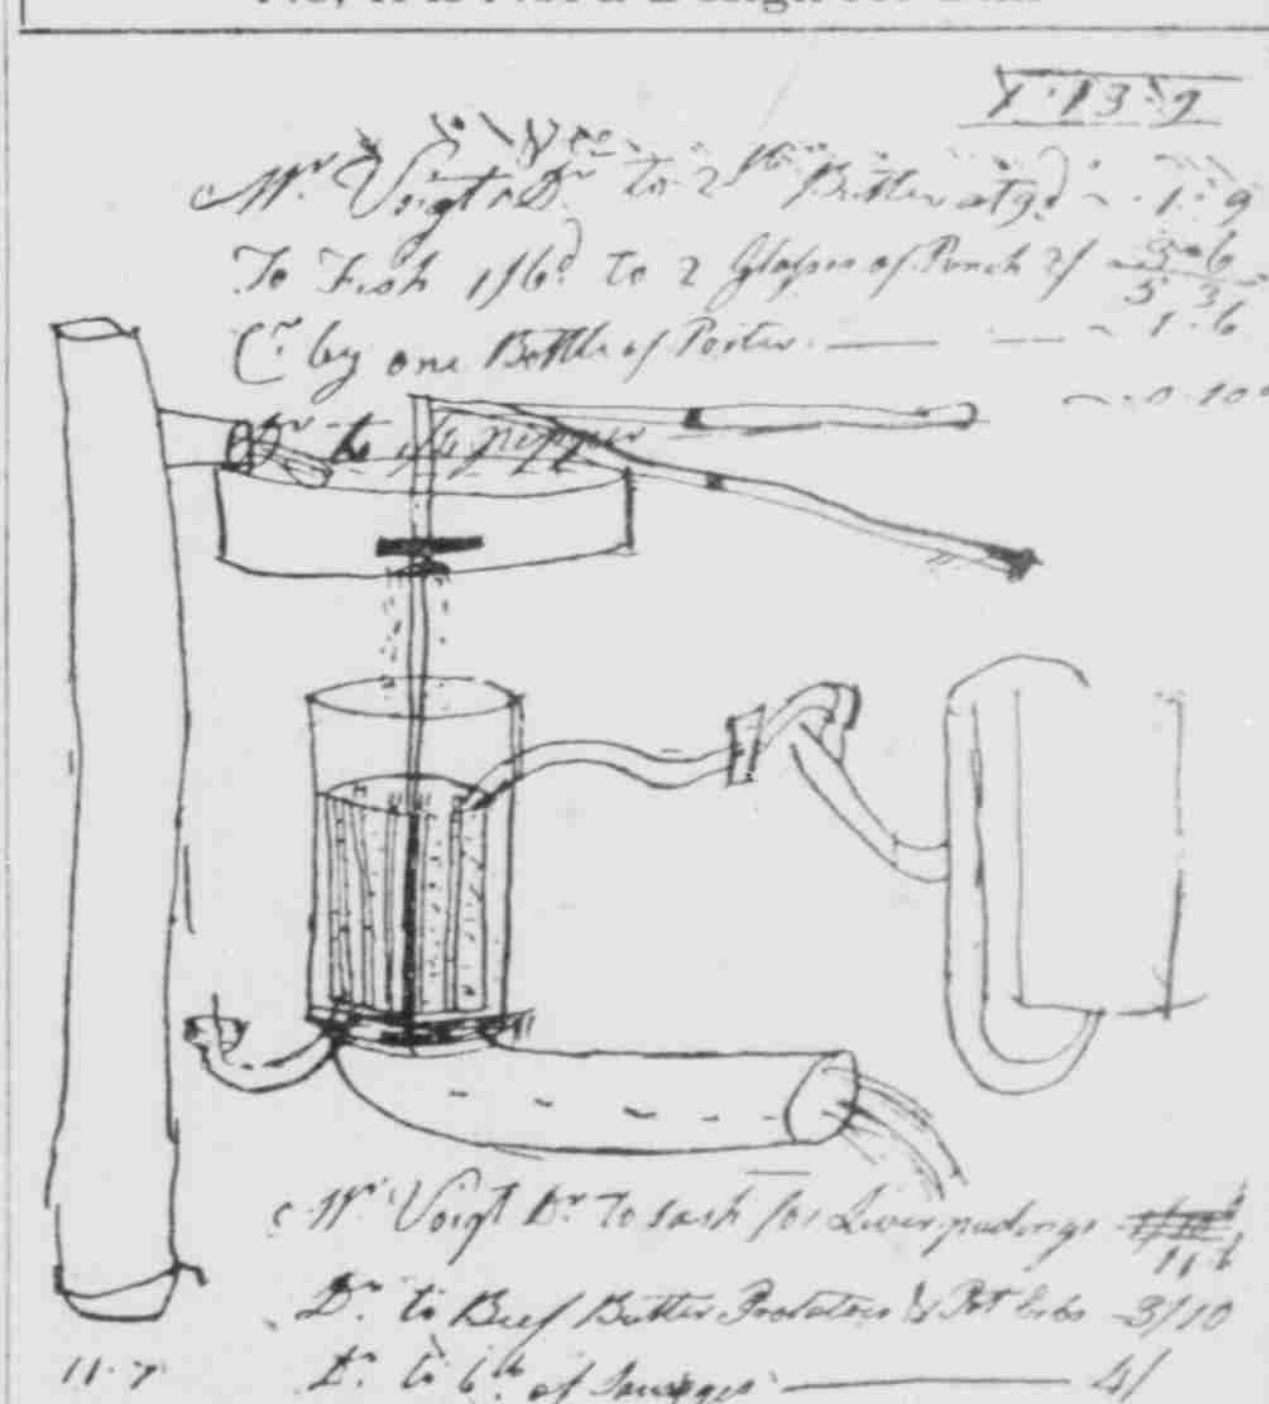 1 · 13 · 9
Mr Voigt Dr to 2 lb Butter at 9d ~ · 1 · 9
To Fish 1/6d To 2 Glasses of Punch 2/ 3 · 6
5 · 3
Cr by one Bottle of Porter — — ~ 1 · 6
Dr to 1/4 pepper ~ · 0 · 10
Mr Voigt Dr To cash for Liver pudings
11 · 6
Dr to Beef Butter Protatoes & Pot 3/10
11 · 7 Dr to 6 lb of Sausages — 4/